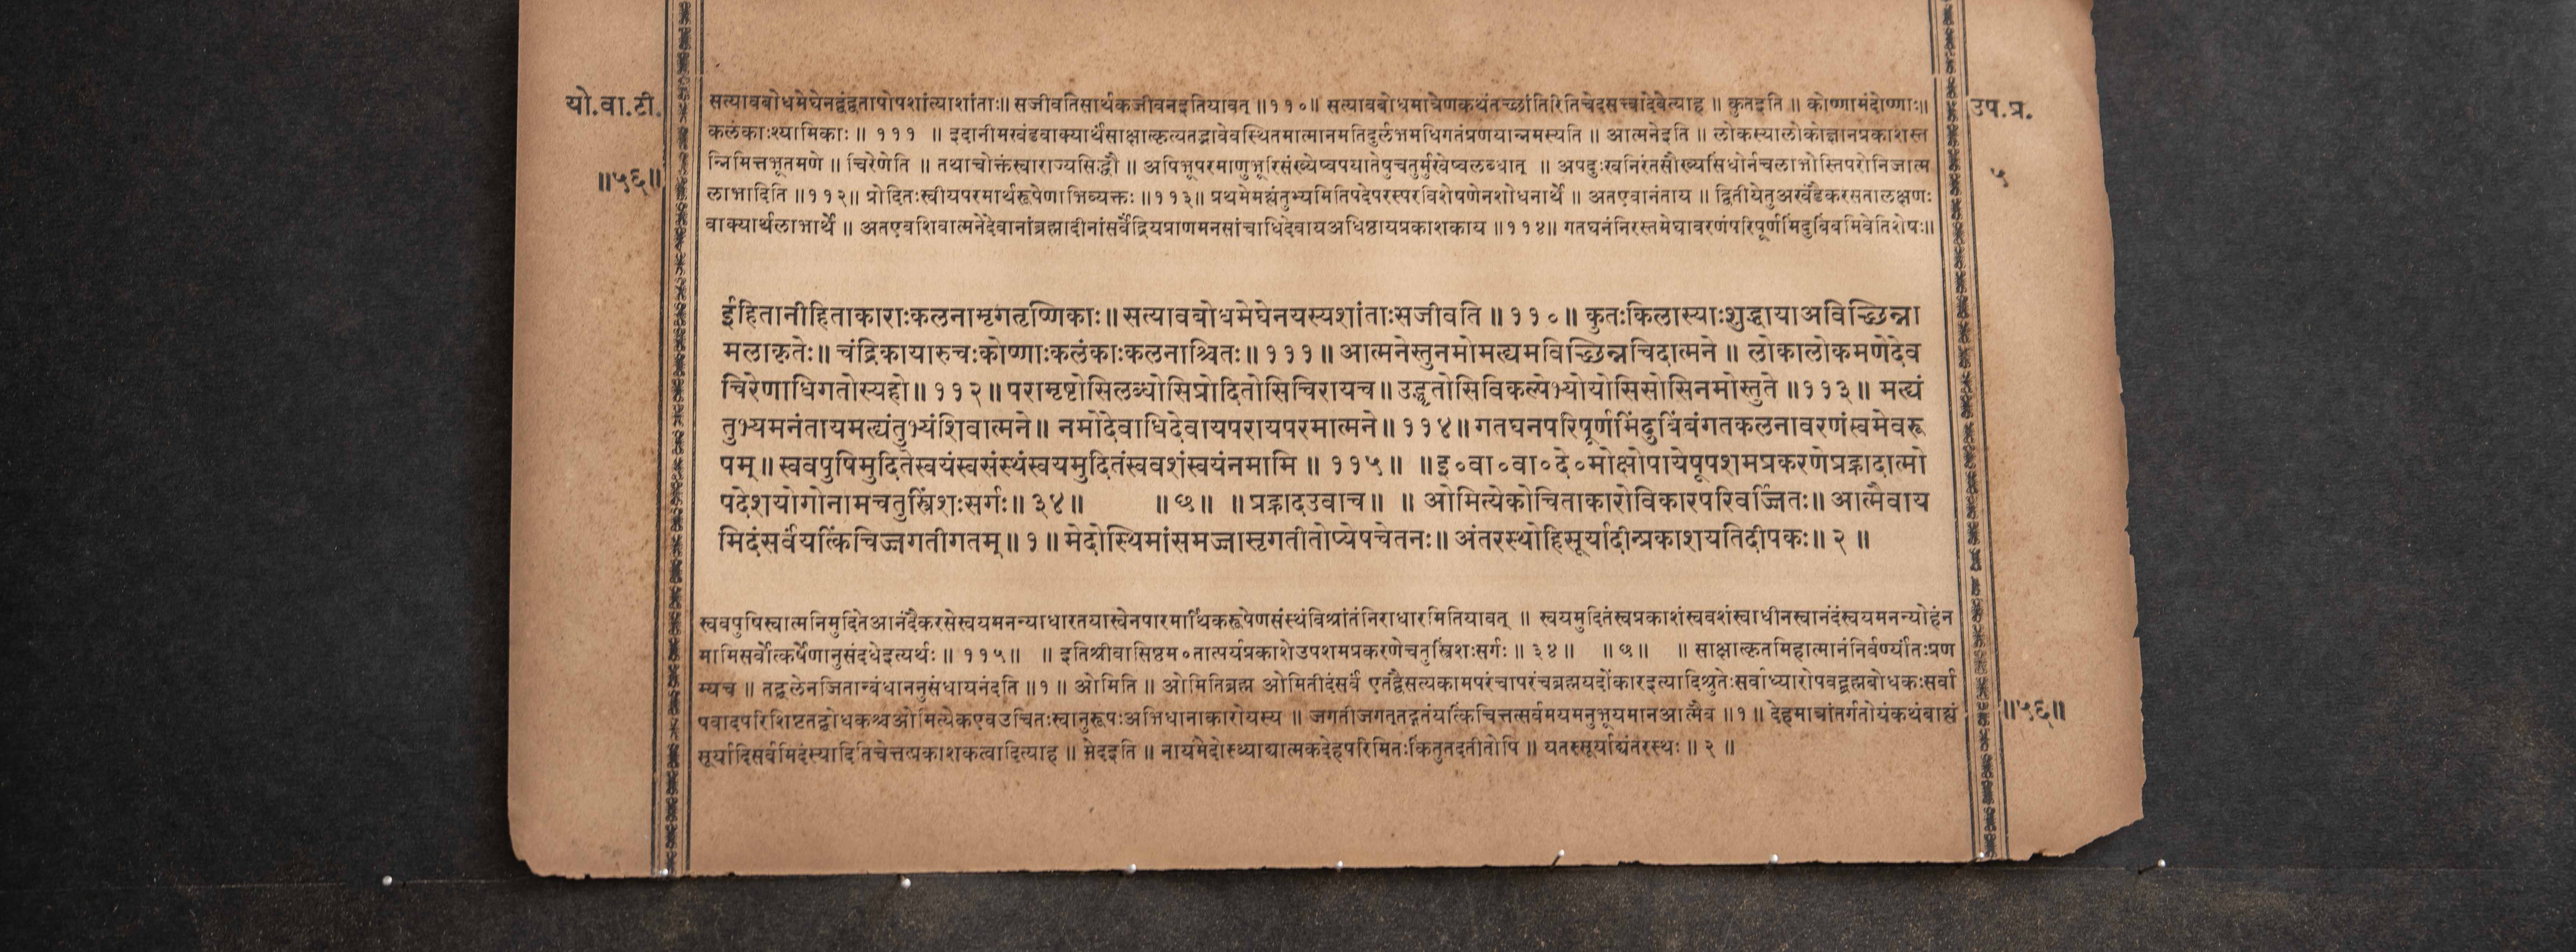 यो.वा.टी.
॥५६॥
सत्यावबोधमेघेनद्वंद्वतापोपशांत्याशांताः॥ सजीवतिसार्थकजीवनइतियावत् ॥११०॥ सत्यावबोधमात्रेणकथंतच्छांतिरितिचेदसत्त्वादेवेत्याह ॥ कुतइति ॥ कोष्णामंदोष्णाः॥
कलंकाःश्यामिकाः ॥ १११ ॥ इदानीमखंडवाक्यार्थंसाक्षात्कृत्यतद्भावेवस्थितमात्मानमतिदुर्लभमधिगतंप्रणयान्नमस्यति ॥ आत्मनेइति ॥ लोकस्यालोकोज्ञानप्रकाशस्त
न्निमित्तभूतमणे ॥ चिरेणेति ॥ तथाचोक्तंस्वाराज्यसिद्धौ ॥ अपिभूपरमाणुभूरिसंख्येष्वपयातेषुचतुर्मुखेष्वलब्धात् ॥ अपदुःखनिरंतसौख्यसिंधोर्नचलाभोस्तिपरोनिजात्म
लाभादिति ॥११२॥ प्रोदितःस्वीयपरमार्थरूपेणाभिव्यक्तः ॥११३॥ प्रथमेमह्यंतुभ्यमितिपदेपरस्परविशेषणेनशोधनार्थे ॥ अतएवानंताय ॥ द्वितीयेतुअखंडैकरसतालक्षणः
वाक्यार्थलाभार्थे ॥ अतएवशिवात्मनेदेवानांब्रह्मादीनांसर्वेंद्रियप्राणमनसांचाधिदेवायअधिष्ठायप्रकाशकाय ॥११४॥ गतघनंनिरस्तमेघावरणंपरिपूर्णमिंदुबिंबमिवेतिशेषः॥
उप.प्र.
५
ईहितानीहिताकाराःकलनामृगतृष्णिकाः॥ सत्यावबोधमेघेनयस्यशांताःसजीवति ॥ ११०॥ कुतःकिलास्याःशुद्धायाअविच्छिन्ना
मलाकृतेः॥ चंद्रिकायारुचःकोष्णाःकलंकाःकलनाश्चितः॥ १११॥ आत्मनेस्तुनमोमह्यमविच्छिन्नचिदात्मने ॥ लोकालोकमणेदेव
चिरेणाधिगतोस्यहो॥ ११२॥ परामृष्टोसिलब्धोसिप्रोदितोसिचिरायच॥ उद्धृतोसिविकल्पेभ्योयोसिसोसिनमोस्तुते ॥११३॥ मह्यं
तुभ्यमनंतायमह्यंतुभ्यंशिवात्मने॥ नमोदेवाधिदेवायपरायपरमात्मने॥ ११४॥ गतघनपरिपूर्णमिंदुबिंबंगतकलनावरणंस्वमेवरू
पम्॥ स्ववपुषिमुदितेस्वयंस्वसंस्थंस्वयमुदितंस्ववशंस्वयंनमामि ॥ ११५॥ ॥इ०वा०वा०दे०मोक्षोपायेषूपशमप्रकरणेप्रह्रादात्मो
पदेशयोगोनामचतुस्त्रिंशःसर्गः॥ ३४॥ ॥ छ॥ ॥ प्रह्रादउवाच॥ ॥ ओमित्येकोचिताकारोविकारपरिवर्ज्जितः॥ आत्मैवाय
मिदंसर्वंयत्किंचिज्जगतीगतम्॥ १॥ मेदोस्थिमांसमज्जासृगतीतोप्येषचेतनः॥ अंतरस्थोहिसूर्यादीन्प्रकाशयतिदीपकः॥ २ ॥
स्ववपुषिस्वात्मनिमुदितेआनंदैकरसेस्वयमनन्याधारतयास्वेनपारमार्थिकरूपेणसंस्थंविश्रांतंनिराधारमितियावत् ॥ स्वयमुदितंस्वप्रकाशंस्ववशंस्वाधीनस्वानंदंस्वयमनन्योहंन
मामिसर्वोत्कर्षेणानुसंदधेइत्यर्थः ॥ ११५॥ ॥ इतिश्रीवासिष्ठम०तात्पर्यप्रकाशेउपशमप्रकरणेचतुस्त्रिंशःसर्गः ॥ ३४॥ ॥ छ॥ ॥ साक्षात्कृतमिहात्मानंनिर्वर्ण्यांतःप्रण
म्यच ॥ तद्बलेनजितान्बंधाननुसंधायनंदति ॥१॥ ओमिति ॥ ओमितिब्रह्म ओमितीदंसर्वं एतद्वैसत्यकामपरंचापरंचब्रह्मयदोंकारइत्यादिश्रुतेःसर्वाध्यारोपवद्ब्रह्मबोधकःसर्वा
पवादपरिशिष्टतद्बोधकश्चओमित्येकएवउचितःस्वानुरूपःअभिधानाकारोयस्य ॥ जगतीजगत्तद्गतंयत्किंचित्तत्सर्वमयमनुभूयमानआत्मैव ॥१॥ देहमात्रांतर्गतोयंकथंबाह्यं
सूर्यादिसर्वमिदंस्यादितिचेत्तत्प्रकाशकत्वादित्याह ॥ मेदइति ॥ नायंमेदोस्थ्याद्यात्मकदेहपरिमितःकिंतुतदतीतोपि ॥ यतस्सूर्याद्यंतरस्थः ॥ २ ॥
॥५६॥